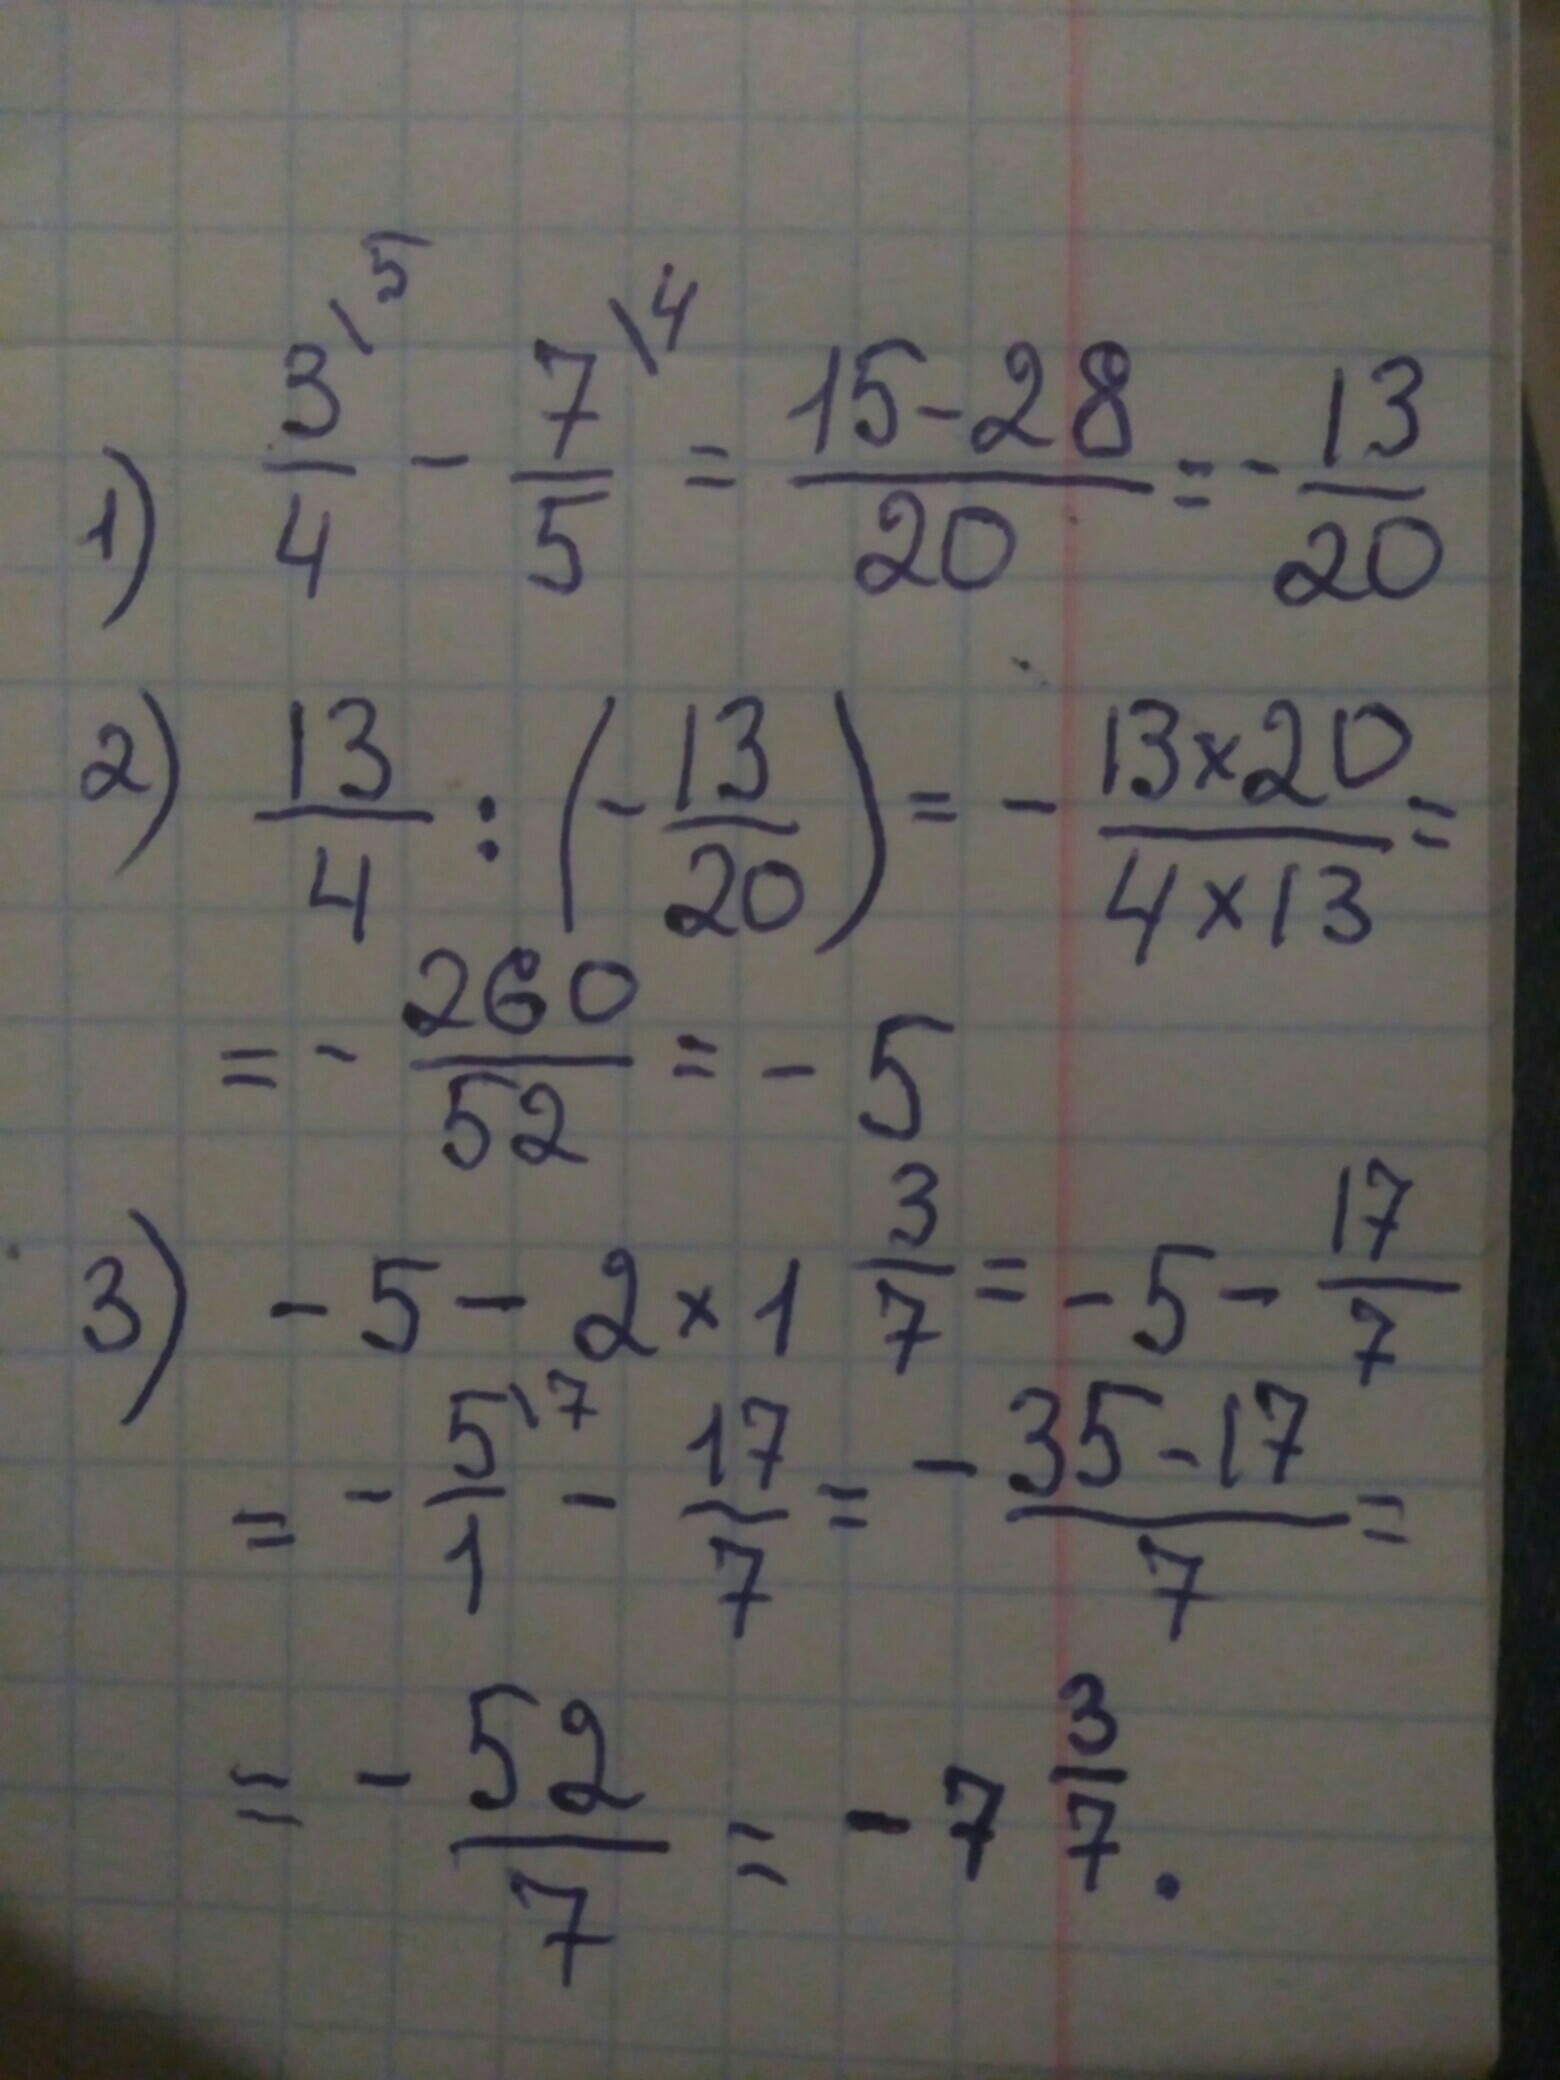 1) 3/4 \5 - 7/5 \4 = 15-28/20 = - 13/20
2) 13/4 : (- 13/20) = - 13×20/4×13 =
= - 260/52 = - 5
3) - 5 - 2 × 1 3/7 = - 5 - 17/7
= - 5/1 \7 - 17/7 = - 35-17/7 =
= - 52/7 = - 7 3/7.